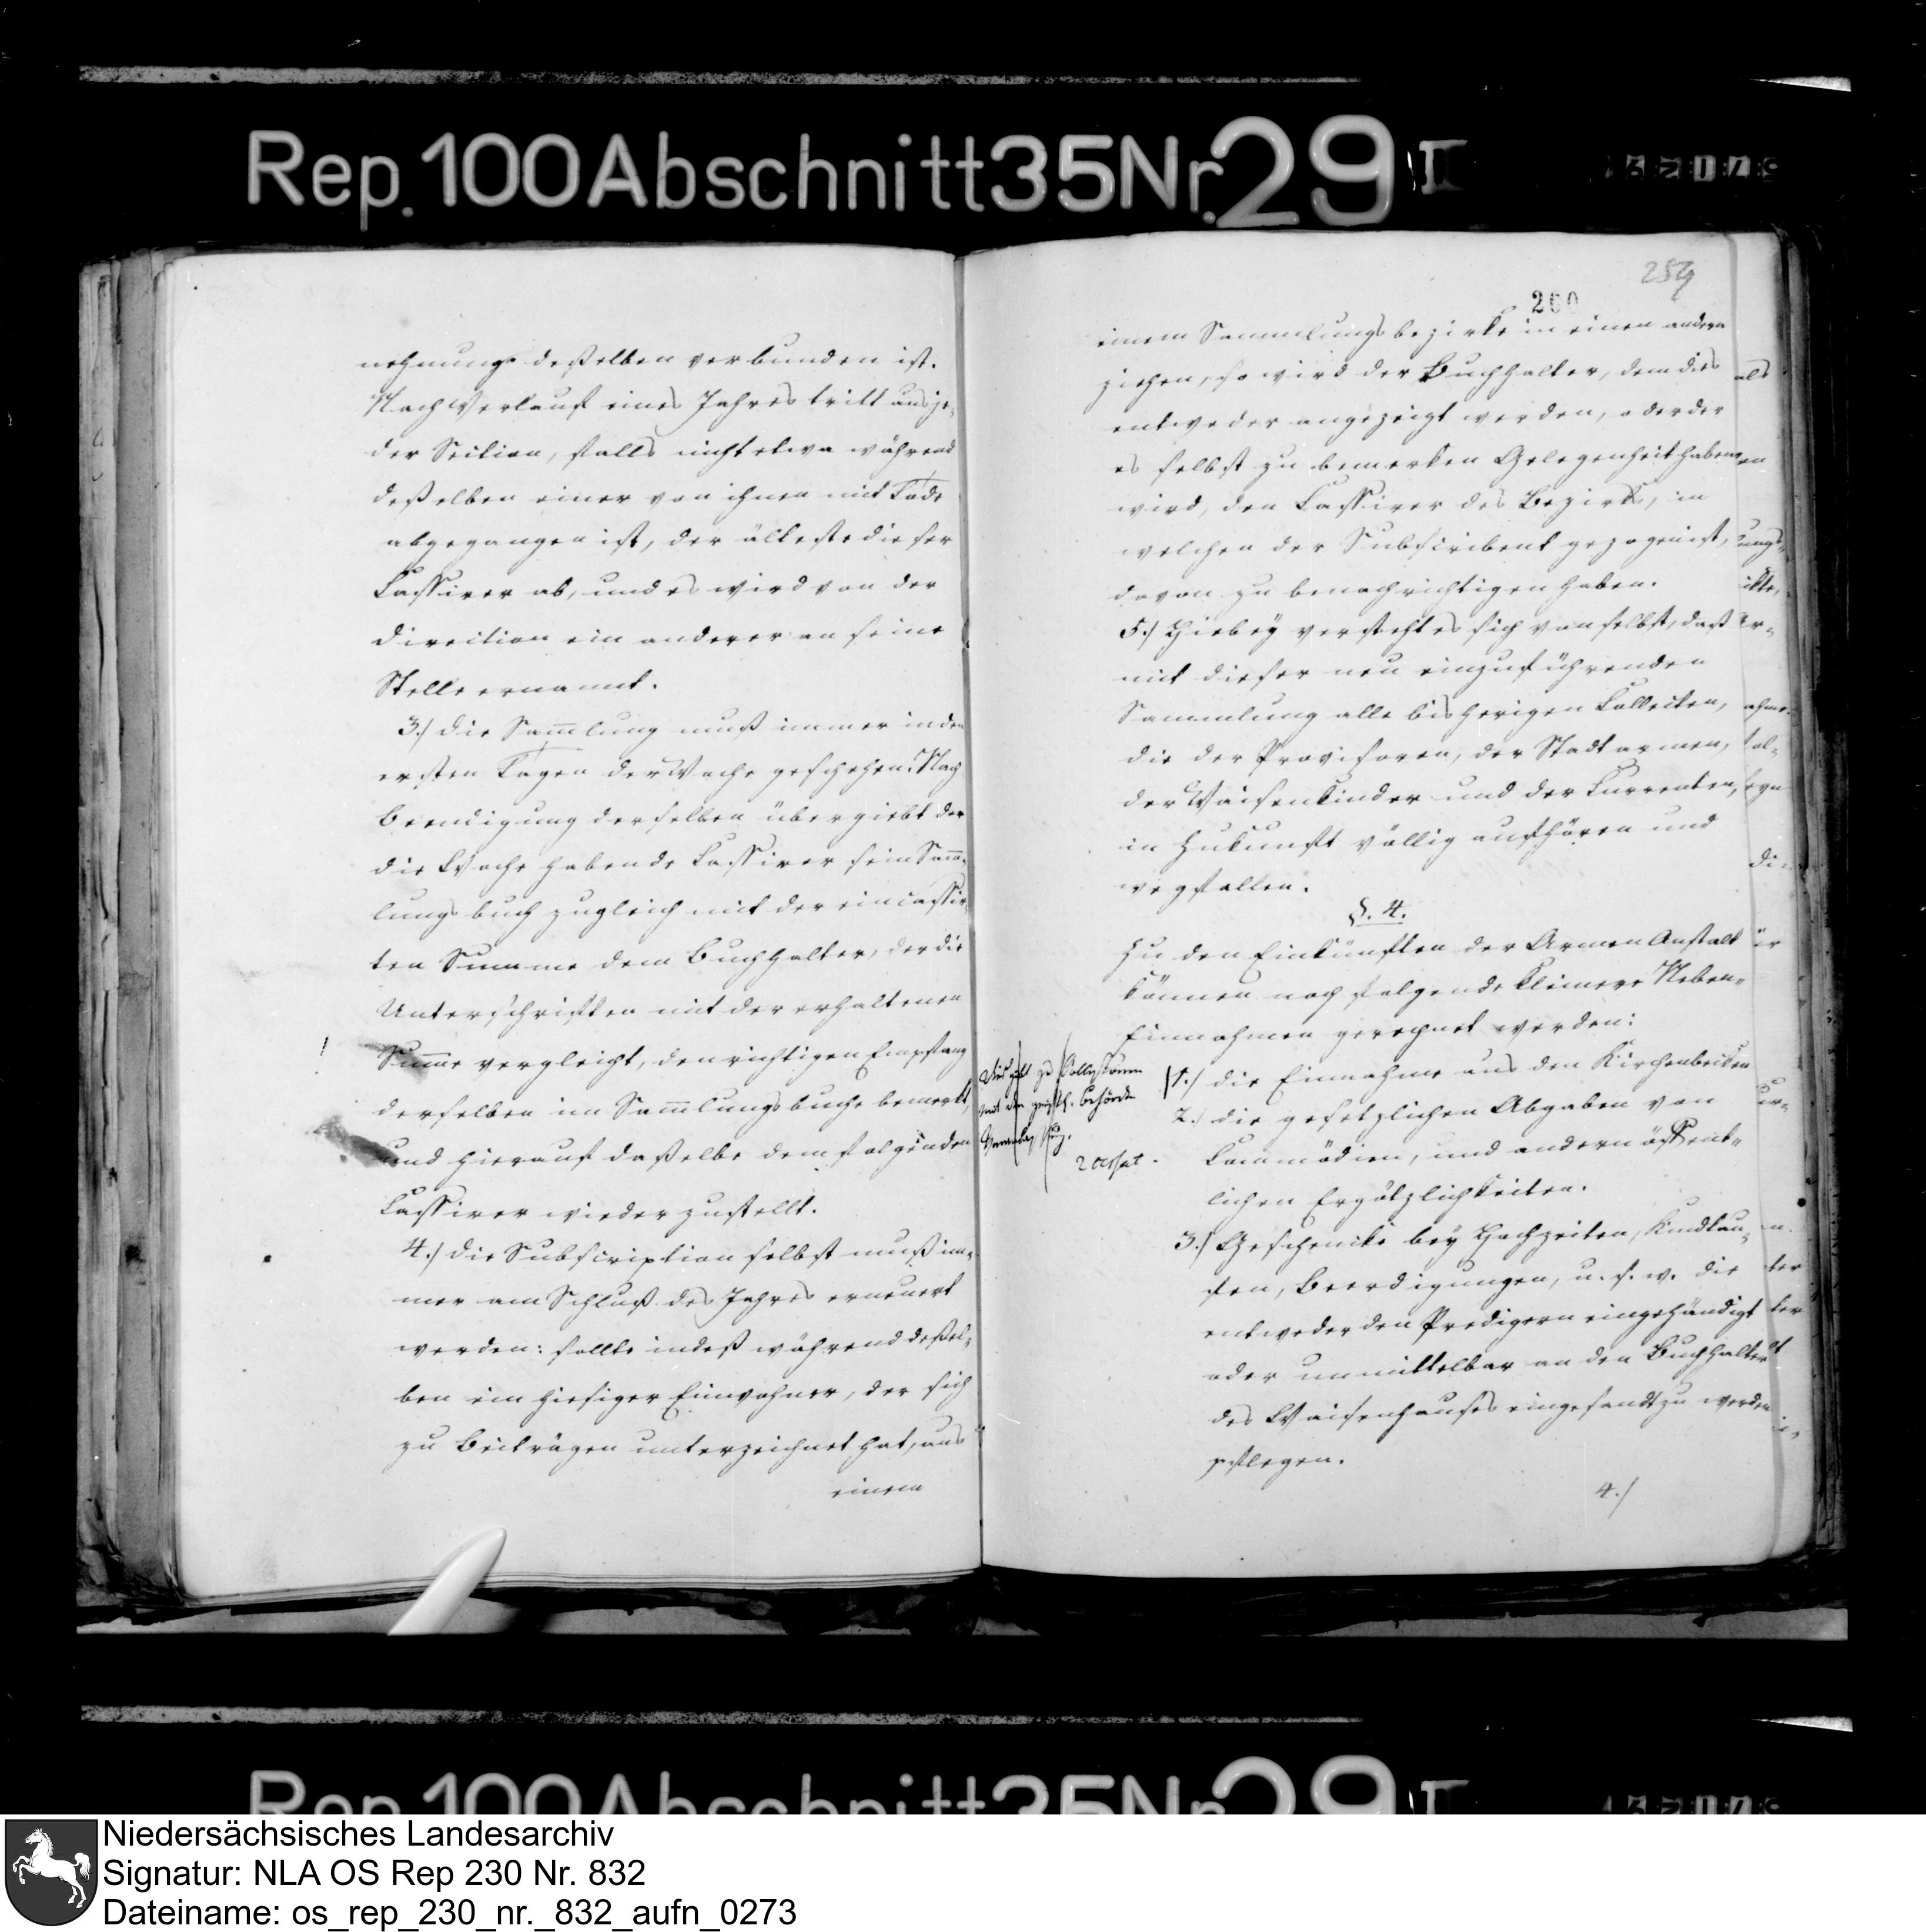 Rep. 100 Abschnitt 35 Nr. 29 I
nehmung deßelben verbunden ist.
Nach Verlauf eines Jahres tritt aus je-
der Section, falls nicht etwa während
deßelben einer von ihnen mit Tode
abgegangen ist, der älteste dieser
Cassirer ab, und es wird von der
Direction ein anderer an seine
Stelle ernannt.
3./ Die Sam̅lung muß immer in den
ersten Tagen der Woche geschehen. Nach
Beendigung derselben übergiebt der
die Woche habende Cassirer sein Sam̅-
lungsbuch zugleich mit der eincassir-
ten Summe dem Buchhalter, der die
Unterschriften mit der erhaltenen
Sum̅e vergleicht, den richtigen Empfang
derselben im Sam̅lungsbuche bemerkt,
und hierauf daßelbe dem folgenden
Cassirer wieder zustellt.
4./ Die Subscription selbst muß im-
mer am Schluß des Jahres erneuert
werden: sollte indeß während deßel-
ben ein hiesiger Einwohner, der sich
zu Beiträgen unterzeichnet hat, aus
einem
259
260
einem Sammlungsbezirke in einen andern
ziehen, so wird der Buchhalter, dem dies
entweder angezeigt werden, oder der
es selbst zu bemerken Gelegenheit haben
wird, den Cassirer des Bezirks, in
welchen der Subscribent gezogen ist,
davon zu benachrichtigen haben.
5./ Hiebey versteht es sich von selbst, daß
mit dieser neu einzuführenden
Sammlung alle bisherigen Collecten,
die der Provisoren, der Stadtarmen,
der Waisenkinder und der Currenten,
in Zukunft völlig aufhören und
wegfallen.
§. 4.
Zu den Einkünften der Armen Anstalt
können noch folgende kleinere Neben-
Einnahmen gerechnet werden:
1./ die Einnahme aus den Kirchenbecken
2./ die gesetzlichen Abgaben von
Commödien, und andern öffent-
lichen Ergötzlichkeiten.
3./ Geschencke bey Hochzeiten, Kindtau-
fen, Beerdigungen, u. s. w. die
entweder den Predigern eingehändigt
oder unmittelbar an den Buchhalter
des Waisenhauses eingesandt zu werden
pflegen.
4./
mit den geistl. Behörde
als
en
ungs-
er-
seyn
di-
ter
Rep. 100 Abschnitt 35 Nr. 29 I
Niedersächsisches Landesarchiv
Signatur: NLA OS Rep 230 Nr. 832
Dateiname: os_rep_230_nr._832_aufn_0273